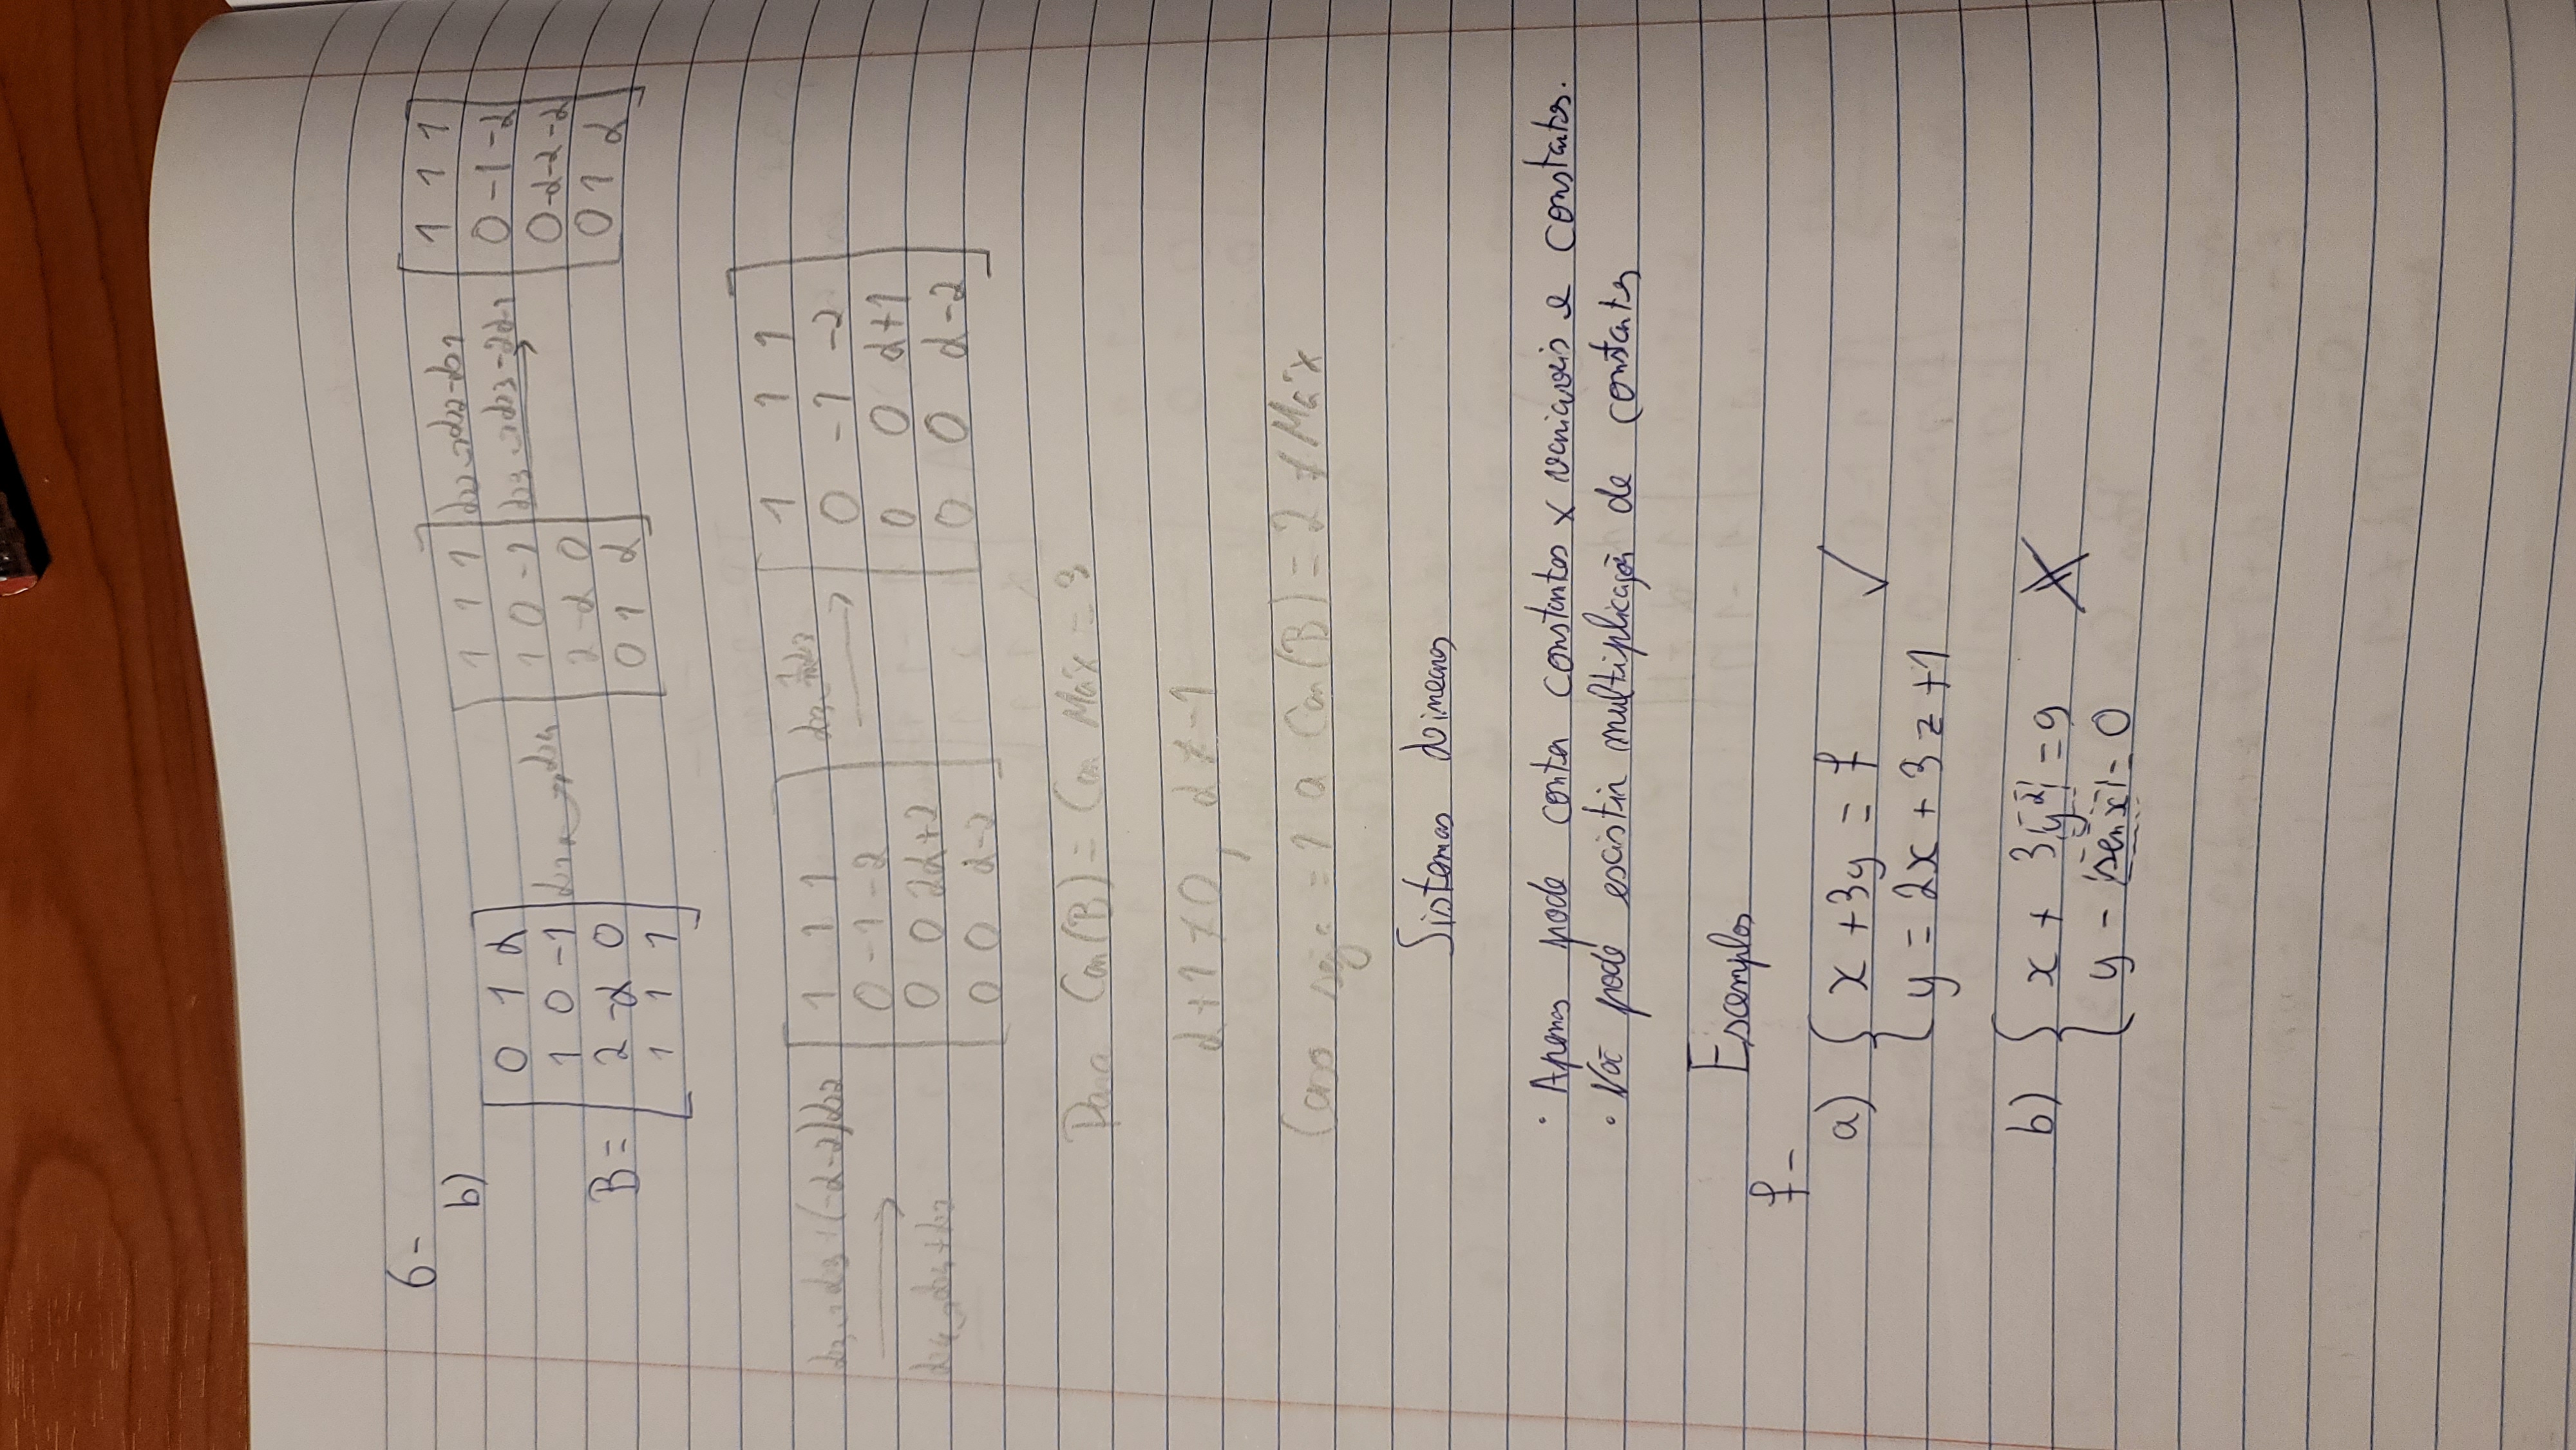 6-
b)
B = [ 0 1 α ; 1 0 -1 ; 2 -α 0 ; 1 1 1 ] L1 ↔ L4 [ 1 1 1 ; 1 0 -1 ; 2 -α 0 ; 0 1 α ] L2 → L2 - L1 L3 → L3 - 2L1 [ 1 1 1 ; 0 -1 -2 ; 0 -α-2 -2 ; 0 1 α ]
L3 → L3 + (-α-2)L2 L4 → L4 + L2 [ 1 1 1 ; 0 -1 -2 ; 0 0 2α+2 ; 0 0 α-2 ] L3 → ½L3 [ 1 1 1 ; 0 -1 -2 ; 0 0 α+1 ; 0 0 α-2 ]
Para Car(B) = Car Máx = 3
α+1 ≠ 0, α ≠ -1
Caso seja = 1 a Car(B) = 2 ≠ Máx
Sistemas Lineares
· Apenas pode conter constantes x variaveis e constantes.
· Não pode existir multiplicação de constantes
Exemplos
7-
a) { x + 3y = 7 ✓
y = 2x + 3z + 1
b) { x + 3y² = 9 X
y - sen x = 0